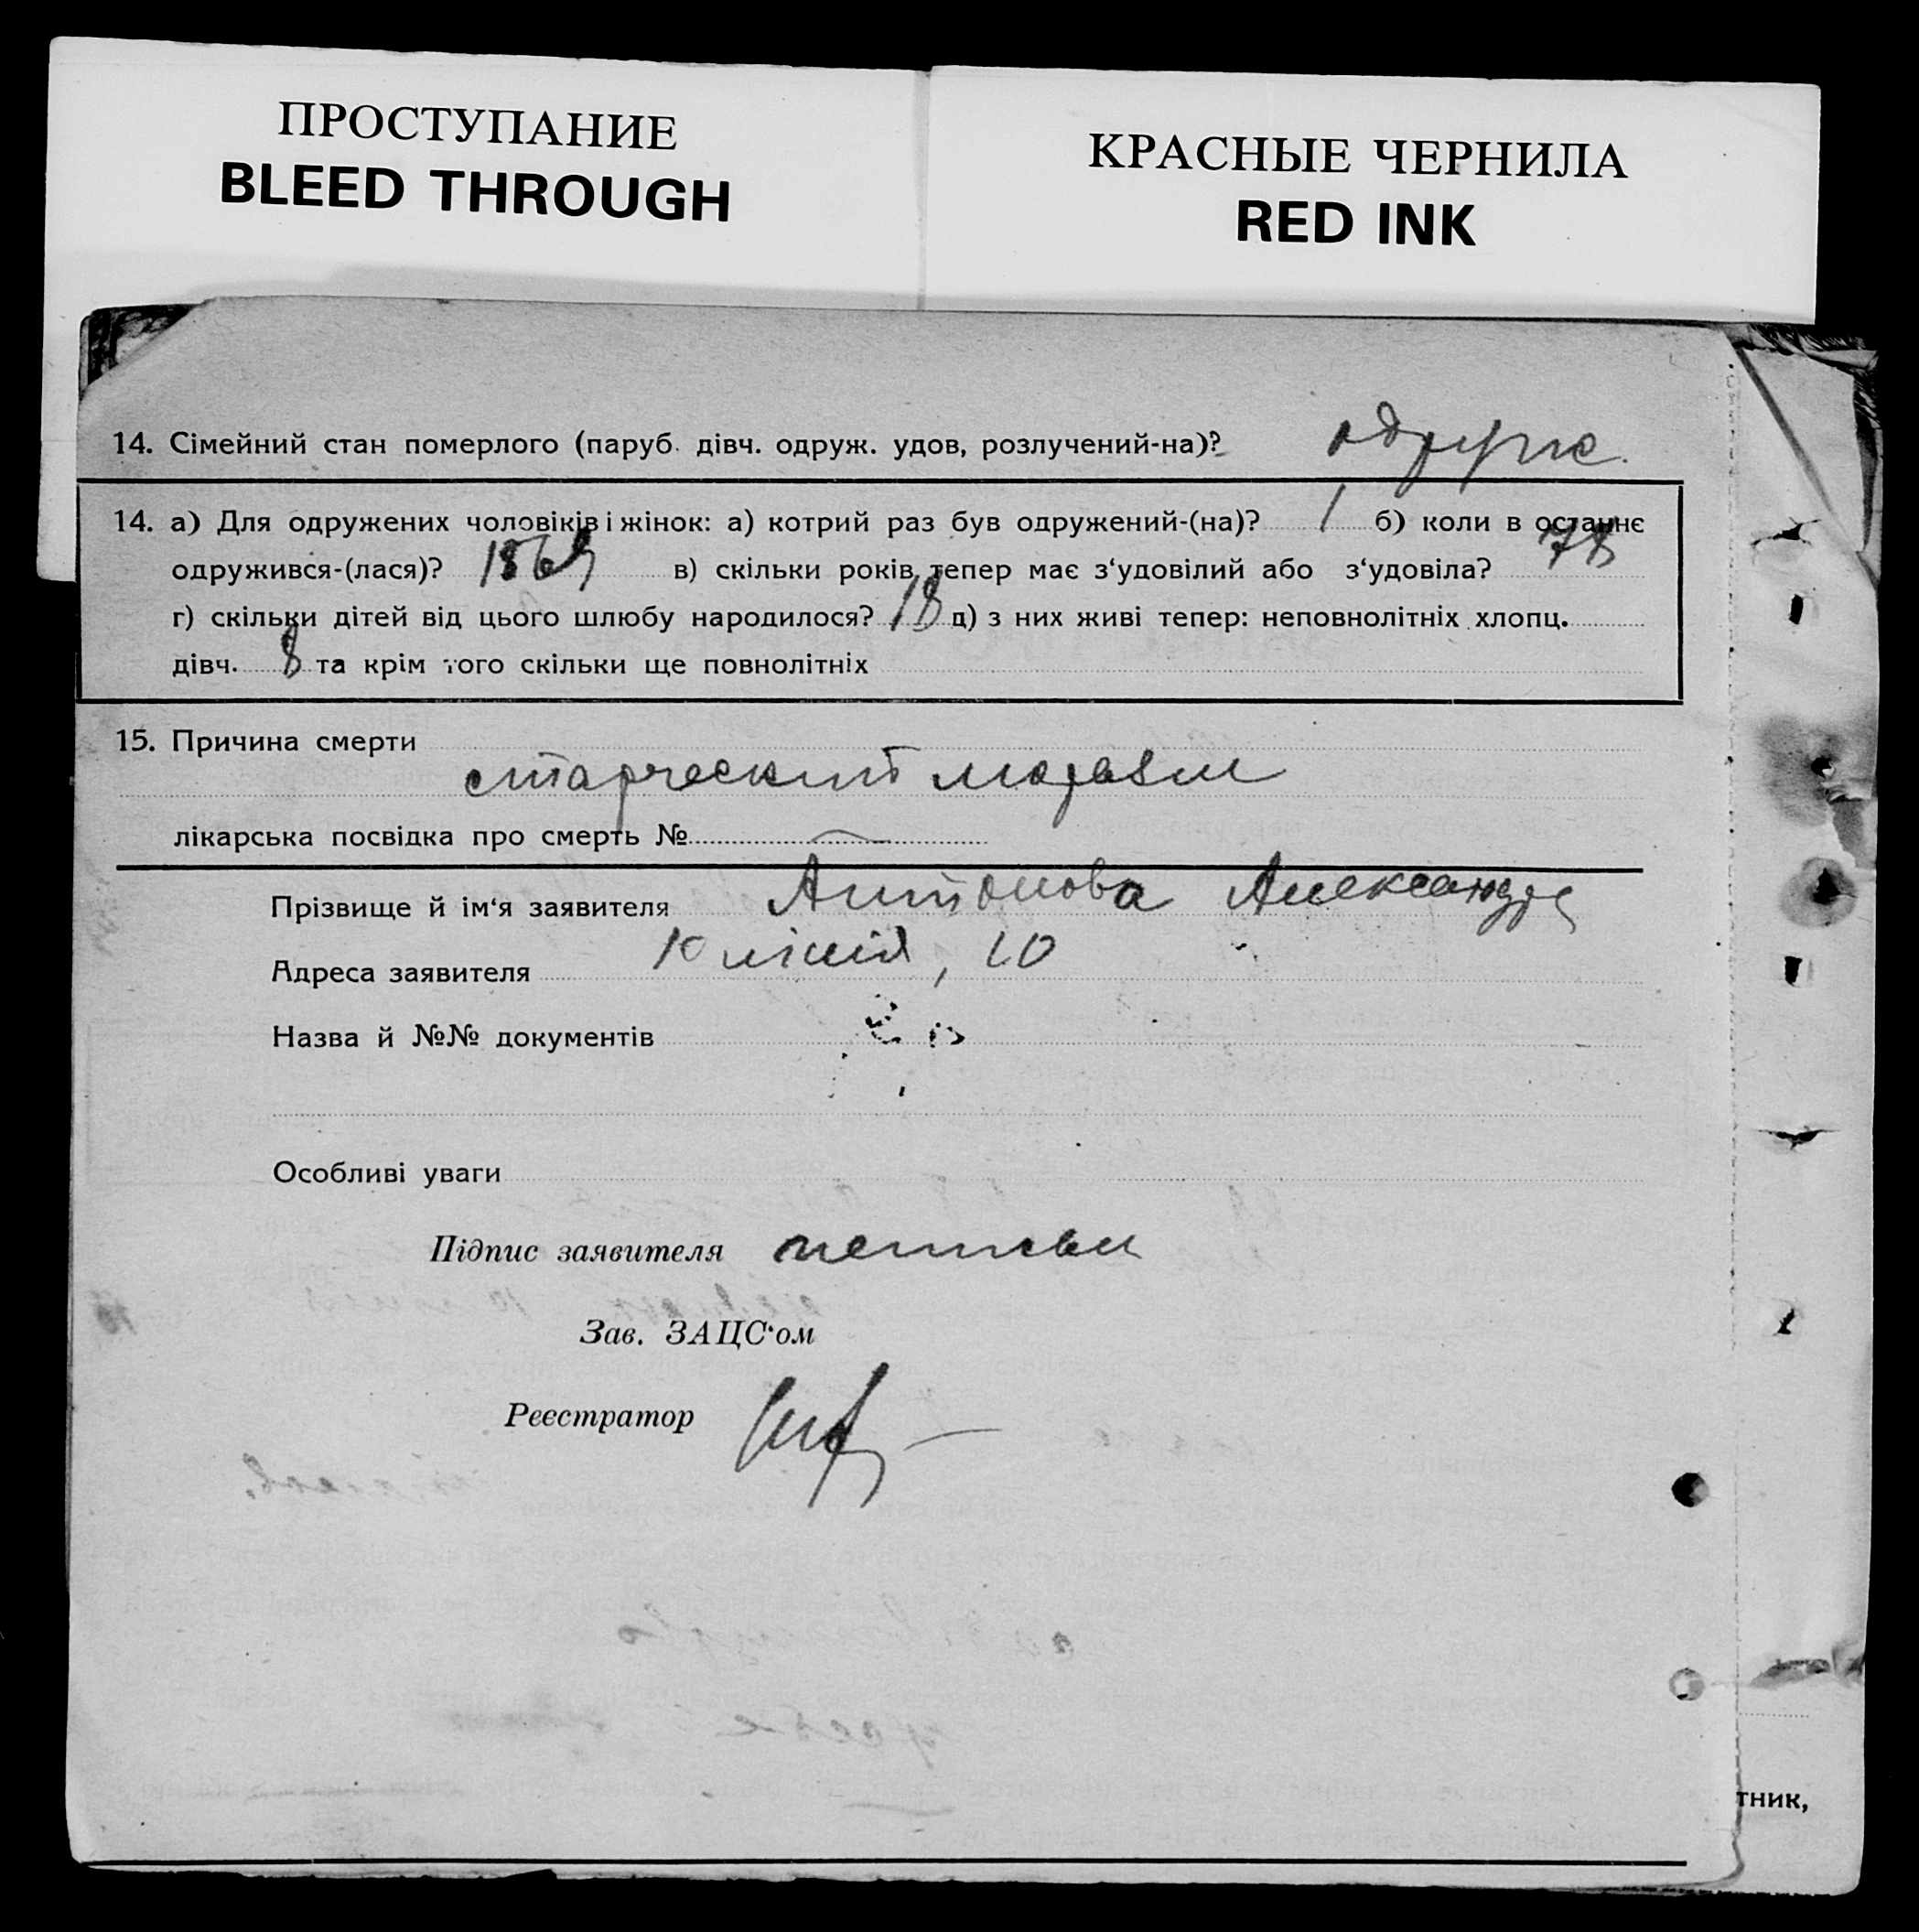 ПРОСТУПАНИЕ
BLEED THROUGH
КРАСНЫЕ ЧЕРНИЛА
RED INK
14. Сімейний стан померлого (паруб. дівч. одруж. удов, розлучений-на)? одруж.
14. а) Для одружених чоловіків і жінок: а) котрий раз був одружений-(на)? 1 б) коли в останнє
одружився-(лася)? 1869 в) скільки років тепер має з‘удовілий або з‘удовіла? 78
г) скільки дітей від цього шлюбу народилося? 18 д) з них живі тепер: неповнолітніх хлопц.
дівч. 8 та крім того скільки ще повнолітніх
15. Причина смерти
старческий маразм
лікарська посвідка про смерть №
Прізвище й ім‘я заявителя Антонова Александра
Адреса заявителя 10 лінія, 10
Назва й №№ документів
Особливі уваги
Підпис заявителя
Зав. ЗАЦС‘ом
Реєстратор
тник,